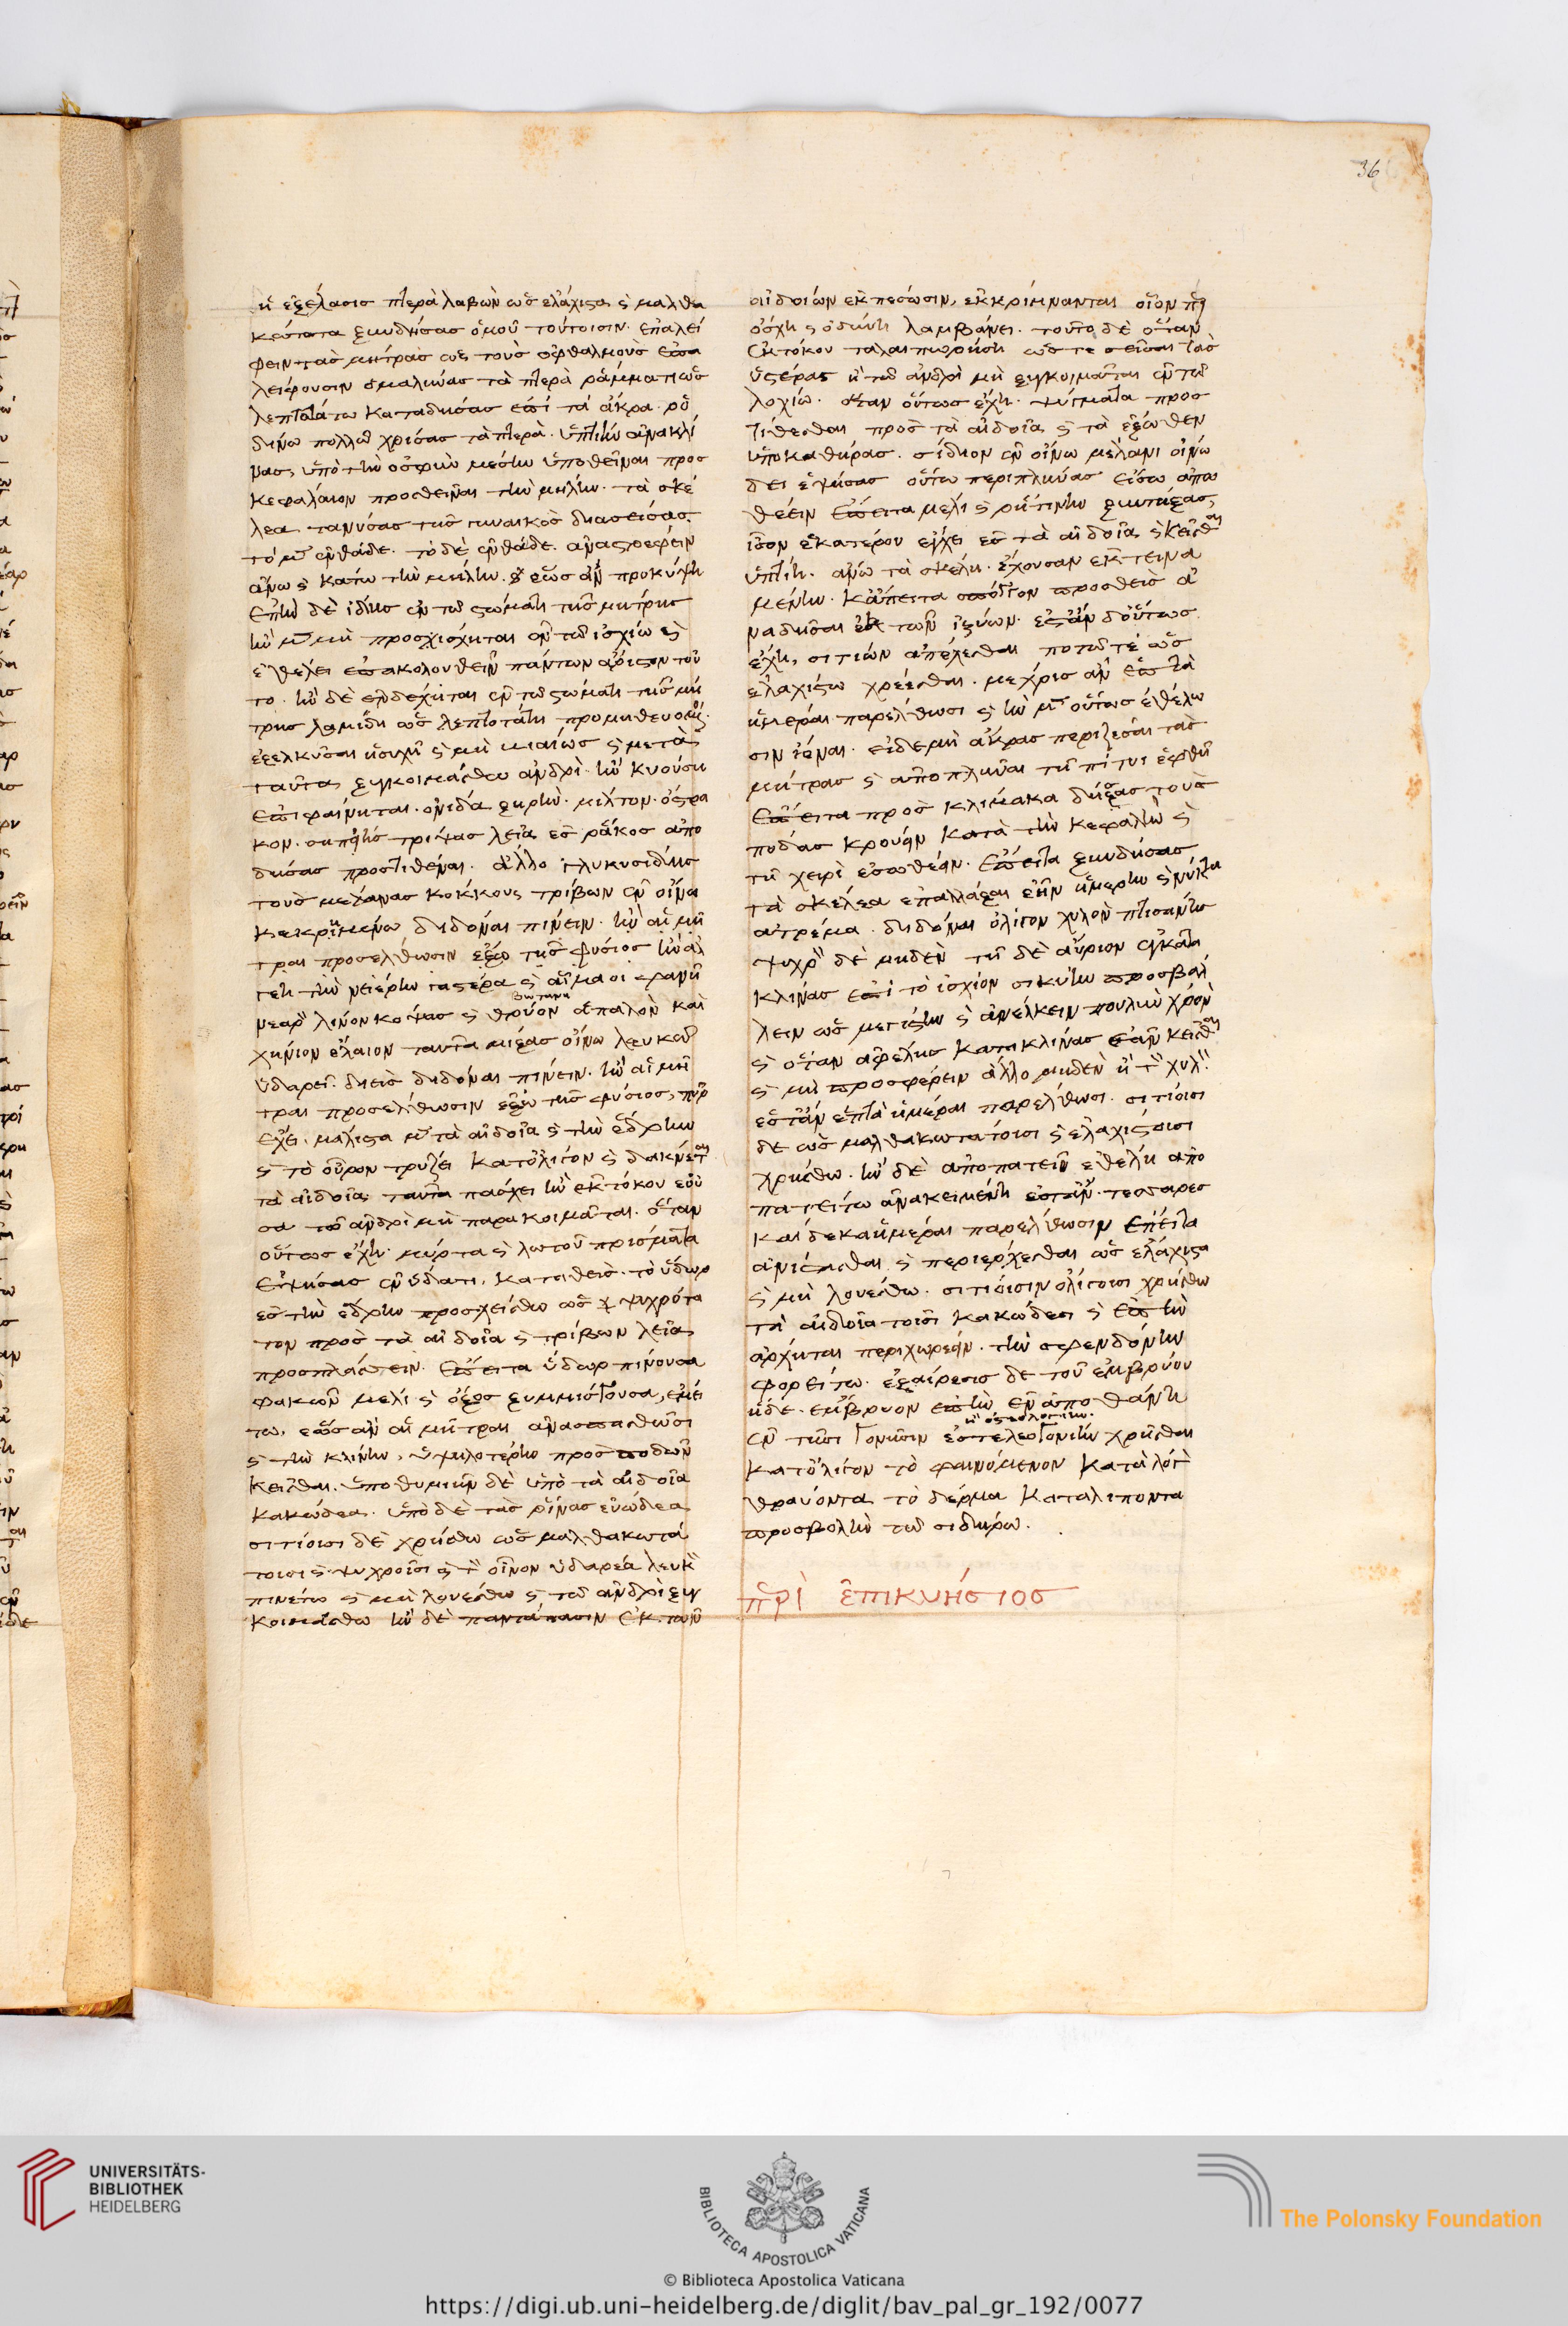 36
ἢ ἐξελάσις πτερὰ λαβὼν ὡς ἐλάχιστα ϛ μαλθα
κώτατα ξυνδήσας ὁμοῦ τούτοισιν· ἐπαλεί
φειν τὰς μήτρας ὡς τοὺς ὀφθαλμοὺς ἐπα
λείφουσιν σμαλύνας τὰ πτερὰ ῥάμματι ὡς
λεπτοτάτω καταδήσας ἐπὶ τὰ ἄκρα· ῥο
δίνω πολλῶ χρίσας τὰ πτερὰ· ὑπτίην ἀνακλί
νας, ὑπὸ τὴν ὀσφὺν μέσην ὑποθεῖναι προσ
κεφάλαιον προσθεῖναι τὴν μήλην· τὰ σκέ
λεα τανύσας τῆς γυναικὸς διασείσας
τὸ μὲν ἐνθάδε· τὸ δὲ ἐνθάδε· ἀναστρέφειν
ἄνω ϛ κάτω τὴν μήλην· ἕως ἂν προκύψη
ἐπὴν δὲ ἴδης ἐν τῶ στόματι τῆς μήτρης
ἢν μὲν μὴ προσχίσχηται ἐν τῶ ἰσχίω ϛ
ἐθέλει ἐπακολουθεῖν πάντων ἄριστον τοῦ
το· ἢν δὲ ἐνδέχηται ἐν τῶ στόματι τῆς μή
τρης λαμίδι ὡς λεπτοτάτη προμηθευομ
ἐξελκῦσαι ἡσυχῆ ϛ μὴ βιαίως ϛ μετὰ
ταῦτα ξυγκοιμάσθω ἀνδρὶ· ἢν κυούση
ἐπιφαίνηται· ὀνίδα ξηρὴν· μίλτον· ὄστρα
κον· σηπίης τρίψας λεῖα ἐς ῥάκος ἀπο
δήσας προστιθέναι· ἄλλο γλυκυσίδης
τοὺς μέλανας κόκκους τρίβων ἐν οἴνω
κεκριμένω διδόναι πίνειν· ἢν αἱ μῆ
τραι προσέλθωσιν ἔξω τῆς φύσιος ἢν ἀλ
γέη τὴν νειέρην γαστέρα ϛ αἷμά οἱ φανῆ
βοτάνη
νεαρ λίνον κόψας ϛ θρύον ἁπαλὸν καὶ
χήνιον ἔλαιον ταῦτα μίξας οἴνω λευκῶ
ὑδαρεῖ· διεὶς διδόναι πίνειν· ἢν αἱ μῆ
τραι προσέλθωσιν ἔξω τῆς φύσιος, πῦρ
ἔχει· μάλιστα μὲν τὰ αἰδοῖα ϛ τὴν ἕδρην
ϛ τὸ οὖρον τρύζει κατόλιγον ϛ δάκνεται
τὰ αἰδοῖα ταῦτα πάσχει ἢν ἐκ τόκου ἐοῦ
σα τῶ ἀνδρὶ μὴ παρακοιμᾶται· ὅταν
οὕτως ἔχη· μύρτα ϛ λωτοῦ πρίσματα
ἑψήσας ἐν ὕδατι, κατατιθεὶς· τὸ ὕδωρ
ἐς τὴν ἕδρην προσχείσθω ὡς ψυχρότα
τον πρὸς τὰ αἰδοῖα ϛ τρίβων λεῖα
προσπλάττειν· ἔπειτα ὕδωρ πίνουσα
φακῶν μέλι ϛ ὄξος ξυμμίσγουσα, ἐμεί
τω, ἕως ἂν αἱ μῆτραι ἀνασπασθῶσι
ϛ τὴν κλίνην, ὑψηλοτέρην πρὸς ποδῶν
κεῖσθαι· ὑποθυμιῆν δὲ ὑπὸ τὰ αἰδοῖα
κακώδεα· ὑπὸ δὲ τὰς ῥῖνας εὐώδεα
σιτίοισι δὲ χρήσθω ὡς μαλθακωτά
τοισι ϛ ψυχροῖσι ϛ τ οἶνον ὑδαρέα λευκ
πινέτω ϛ μὴ λουέσθω ϛ τῶ ἀνδρὶ ξυγ
κοιμάσθω ἢν δὲ παντάπασιν ἐκ τῶν
αἰδοίων ἐκπέσωσιν, ἐκκρίμνανται οἷον περ
ὄσχη ϛ ὀδύνη λαμβάνει· τοῦτο δὲ ὅταν
ἐκ τόκου ταλαιπωρήση ὥστε σεῖσαι τὰς
ὑστέρας ἢ τῶ ἀνδρὶ μὴ ξυγκοιμᾶται ἐν τῶ
λοχίω· ὅταν οὕτως ἔχη· ψύγματα προσ
τίθεσθαι πρὸς τὰ αἰδοῖα ϛ τὰ ἔξωθεν
ὑποκαθήρας· σίδιον ἐν οἴνω μέλανι οἰνώ
δει ἑψήσας οὕτω περιπλύνας εἴσω ἀπω
θέειν ἔπειτα μέλι ϛ ῥητίνην ξυντήξας,
ἴσον ἑκατέρου ἐγχεῖ ἐς τὰ αἰδοῖα ϛ κεῖσθαι
ὑπτίη· ἄνω τὰ σκέλη· ἔχουσαν ἐκτεινα
μένην· κἄπειτα σπόγγον προσθεὶς ἀ
ναδῆσαι ἐκ τῶν ἰξύων· ἐστὰν δ' οὕτως
ἔχη, σιτιών ἀπέχεσθαι ποτῶ τέ ὡς
ἐλαχίστω χρέεσθαι· μέχρις ἂν ἑπτὰ
ἡμέραι παρέλθωσι ϛ ἢν μὲν οὕτως ἐθέλω
σιν ἰέναι· εἰδεμὴ ἄκρας περιξέσαι τὰς
μήτρας ϛ ἀποπλῦναι τῆ πίτυι ἑφθῆ
ἔπειτα πρὸς κλίμακα δήσας τοὺς
πόδας κρούειν κατὰ τὴν κεφαλὴν ϛ
τῆ χειρὶ ἐσωθέειν· ἔπειτα ξυνδήσας
τὰ σκέλεα ἐπαλλάξαι ἐῆν ἡμέρην ϛ νύκτα
ἀτρέμα· διδόναι ὀλίγον χυλὸν πτισάνης
ψυχρ δὲ μηδὲν τῆ δὲ αὔριον ἐγκατα
κλίνας ἐπὶ τὸ ἰσχίον σικύην προσβάλ
λειν ὡς μεγίστην ϛ ἀνέλκειν πουλὺν χρόνον
ϛ ὅταν ἀφέλης κατακλίνας ἐᾶν κεῖσθαι
ϛ μὴ προσφέρειν ἄλλο μηδὲν ἢ τ χυλ·
ἐστὰν ἑπτὰ ἡμέραι παρέλθωσι· σιτίοισι
δὲ ὡς μαλθακωτάτοισι ϛ ἐλαχίστοισι
χρήσθω· ἢν δὲ ἀποπατεῖν ἐθέλη ἀπο
πατείτω ἀνακειμένη ἐστὰν· τεσσαρες
καίδεκα ἡμέραι παρέλθωσιν ἔπειτα
ἀνίστασθαι ϛ περιέρχεσθαι ὡς ἐλάχιστα
ϛ μὴ λουέσθω· σιτίοισιν ὀλίγοισι χρήσθω
τὰ αἰδοῖα τοῖσι κακώδεσι ϛ ἐπὴν
ἄρχηται περιχωρέειν· τὴν σφενδόνην
φορείτω· ἐξαίρεσις δὲ τοῦ ἐμβρύου
ἥδε· ἔμβρυον ἐπὴν ἐναποθάνη
ἢ ὀστεολόγων·
ἐν τῆσι γονῆσιν ἐστελεογονιῆν χρῆσθαι
κατόλιγον τὸ φαινόμενον κατὰ λόγ
θραύοντα τὸ δέρμα καταλιπόντα
προσβολὴν τῶ σιδήρω·
περὶ ἐπικυήσιος
UNIVERSITÄTS-
BIBLIOTHEK
HEIDELBERG
BIBLIOTECA APOSTOLICA VATICANA
The Polonsky Foundation
© Biblioteca Apostolica Vaticana
https://digi.ub.uni-heidelberg.de/diglit/bav_pal_gr_192/0077